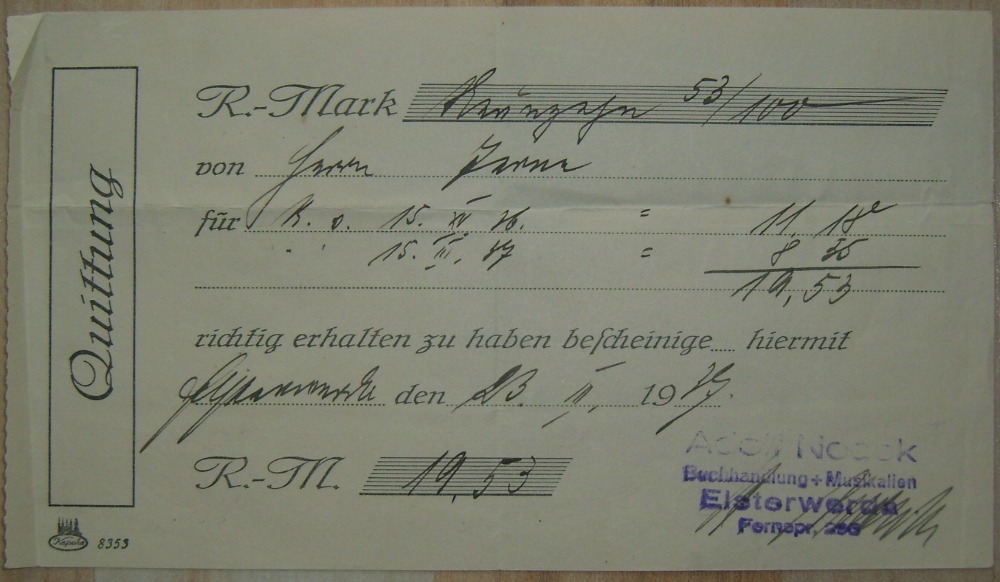 Quittung
R.-Mark Neunzehn 53/100
von Herrn
für R. v. 15. XII. 36. = 11, 18
" " 15. III. 37 = 8 35
19, 53
richtig erhalten zu haben bescheinige hiermit
Elsterwerda den 23. 1937.
R.-M. 19, 53
Adolf Noack
Buchhandlung + Musikalien
Elsterwerda
Fernspr. 286
8353